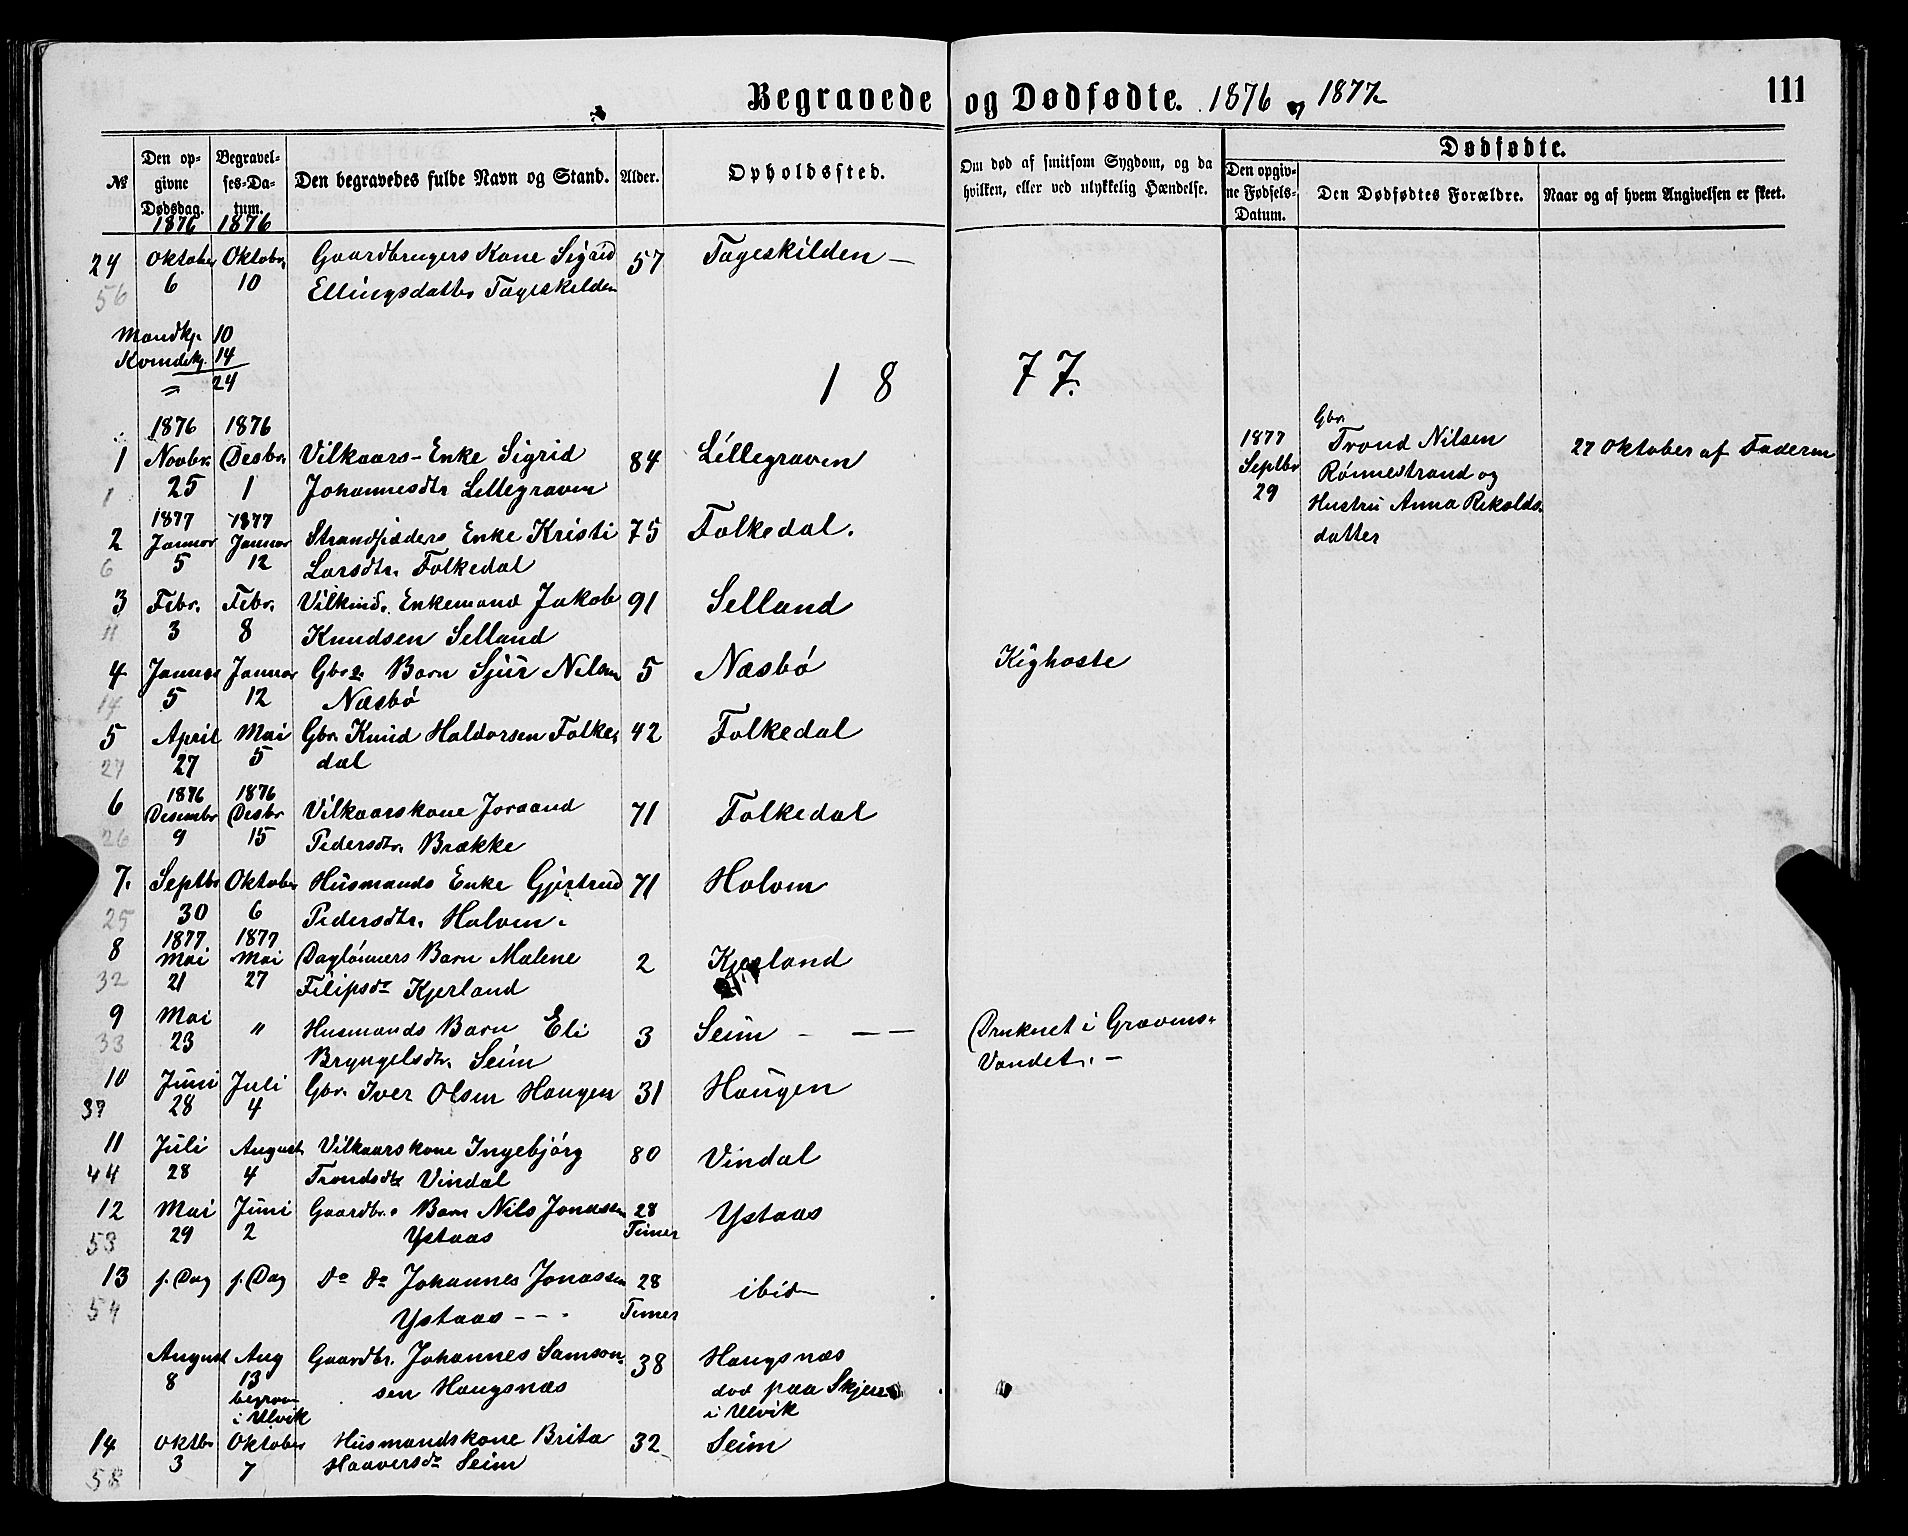 Begravede og Dødfødte. 1876 og 1877
111
№
Den op-
givne
Dødsdag.
1876
Begravel-
ses-Da-
tum.
1876
Den begravedes fulde Navn og Stand.
Alder.
Opholdssted.
Om død af smitsom Sygdom, og da
hvilken, eller ved ulykkelig Hændelse.
Dødfødte.
Den opgiv-
ne Fødsels-
Datum.
Den Dødfødtes Forældre.
Naar og af hvem Angivelsen er skeet.
24 Oktober Oktobr. Gaardbrugers Kone Sigrid 57 Tageskilden –
56 6 10 Ellingsdatter Tageskilden
Mandkj. 10
Kvindekj. 14
24
1 8 7 7.
1876 1876
1 Novbr. Desbr. Vilkaars-Enke Sigrid 84 Lillegraven
1 25 1 Johannesdtr Lillegraven
1877 1877
2 Januar Januar Strandsidders Enke Kristi 75 Folkedal.
6 5 12 Larsdtr. Folkedal
3 Febr. Febr. Vilkmd. Enkemand Jakob 91 Selland
11 3 8 Knudsen Selland
4 Januar Januar Gbrs. Barn Sjur Nilsen 5 Næsbø Kighoste
14 5 12 Næsbø
5 April Mai Gbr. Knud Haldorsen Folke- 42 Folkedal
27 27 5 dal
1876 1876
6 Desembr Desbr Vilkaarskone Joraand 71 Folkedal
26 9 15 Pedersdtr. Brække
7. Septbr Oktober Husmands Enke Gjertrud 71 Holven
25 30 6 Pedersdtr. Holven.
1877 1877
8 Mai Mai Daglønners Barn Malene 2 Kjerland
32 21 27 Filipsdr Kjerland
9 Mai " Husmands Barn Eli 3 Seim – – – Druknet i Gravens-
33 23 Bryngelsdtr. Seim Vandet. –
10 Juni Juli Gbr. Iver Olsen Haugen 31 Haugen
37 28 4
11 Juli August Vilkaarskone Ingebjørg 80 Vindal
44 28 4 Trondsdtr Vindal
12 Mai Juni Gaardbr. Barn Nils Jonassen 28 Ystaas
53 29 2 Ystaas Timer
13 s. Dag s. Dag do do Johannes Jonassen 28 ibid
54 Ystaas – – . Timer
August Aug Gaardbr. Johannes Samson- 38 Haugsnæs
8 13 sen Haugsnæs død paa Skjere
begrav
i Ulvik i Ulvik
14 Oktbr Oktober Husmandskone Brita 32 Seim
58 3 7 Haaversdr Seim
1877
Septbr
29
Gbr.
Trond Nilsen
Rønnestrand og
Hustru Anna Rikolds-
datter
27 Oktober af Faderen